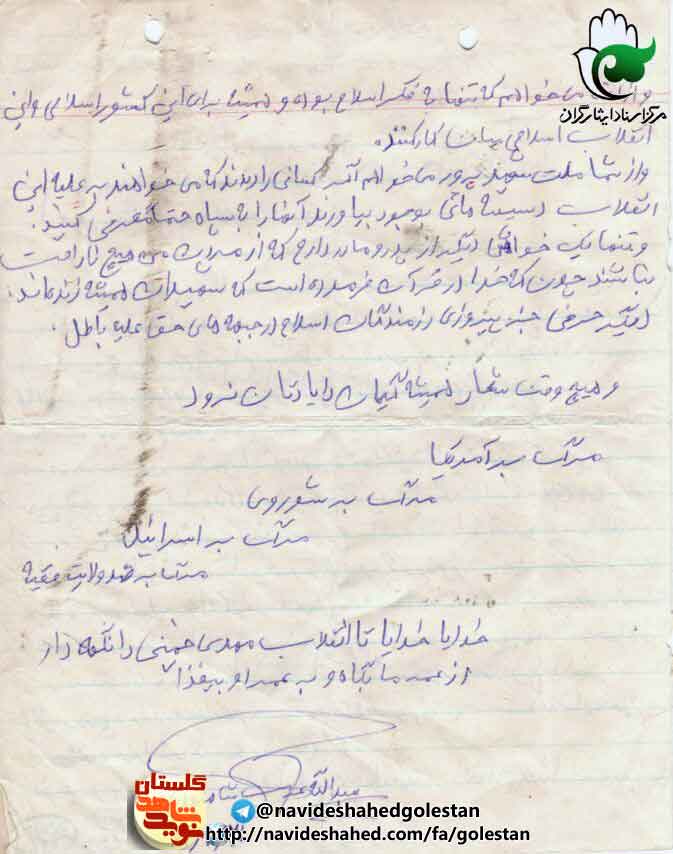 مرکز اسناد ایثارگران
و از شما می خواهم که تنها به فکر اسلام بوده و همیشه برای این کشور اسلامی و این
انقلاب اسلامی مان کار کنند.
و از شما ملت شهید پرور می خواهم آن کسانی را دیدند که می خواهند بر علیه این
انقلاب دسیسه هائی بوجود بیاورند آنها را به سپاه حتما معرفی کنید.
و تنها یک خواهش دیگر از پدر و مادرم دارم که از مرگ من هیچ ناراحت
نباشند چون که خدا در قرآن فرموده است که شهیدان همیشه زنده اند.
دیگر حرفی جز پیروزی رزمندگان اسلام در جبهه های حق علیه باطل.
و هیچ وقت شعار همیشه تان را یادتان نرود
مرگ بر آمریکا
مرگ بر شوروی
مرگ بر اسرائیل
مرگ بر ضد ولایت فقیه
خدایا خدایا تا انقلاب مهدی خمینی را نگهدار
از عمر ما بکاه و به عمر او بیفزا
گلستان
نوید شاهد
@navideshahedgolestan
http://navideshahed.com/fa/golestan